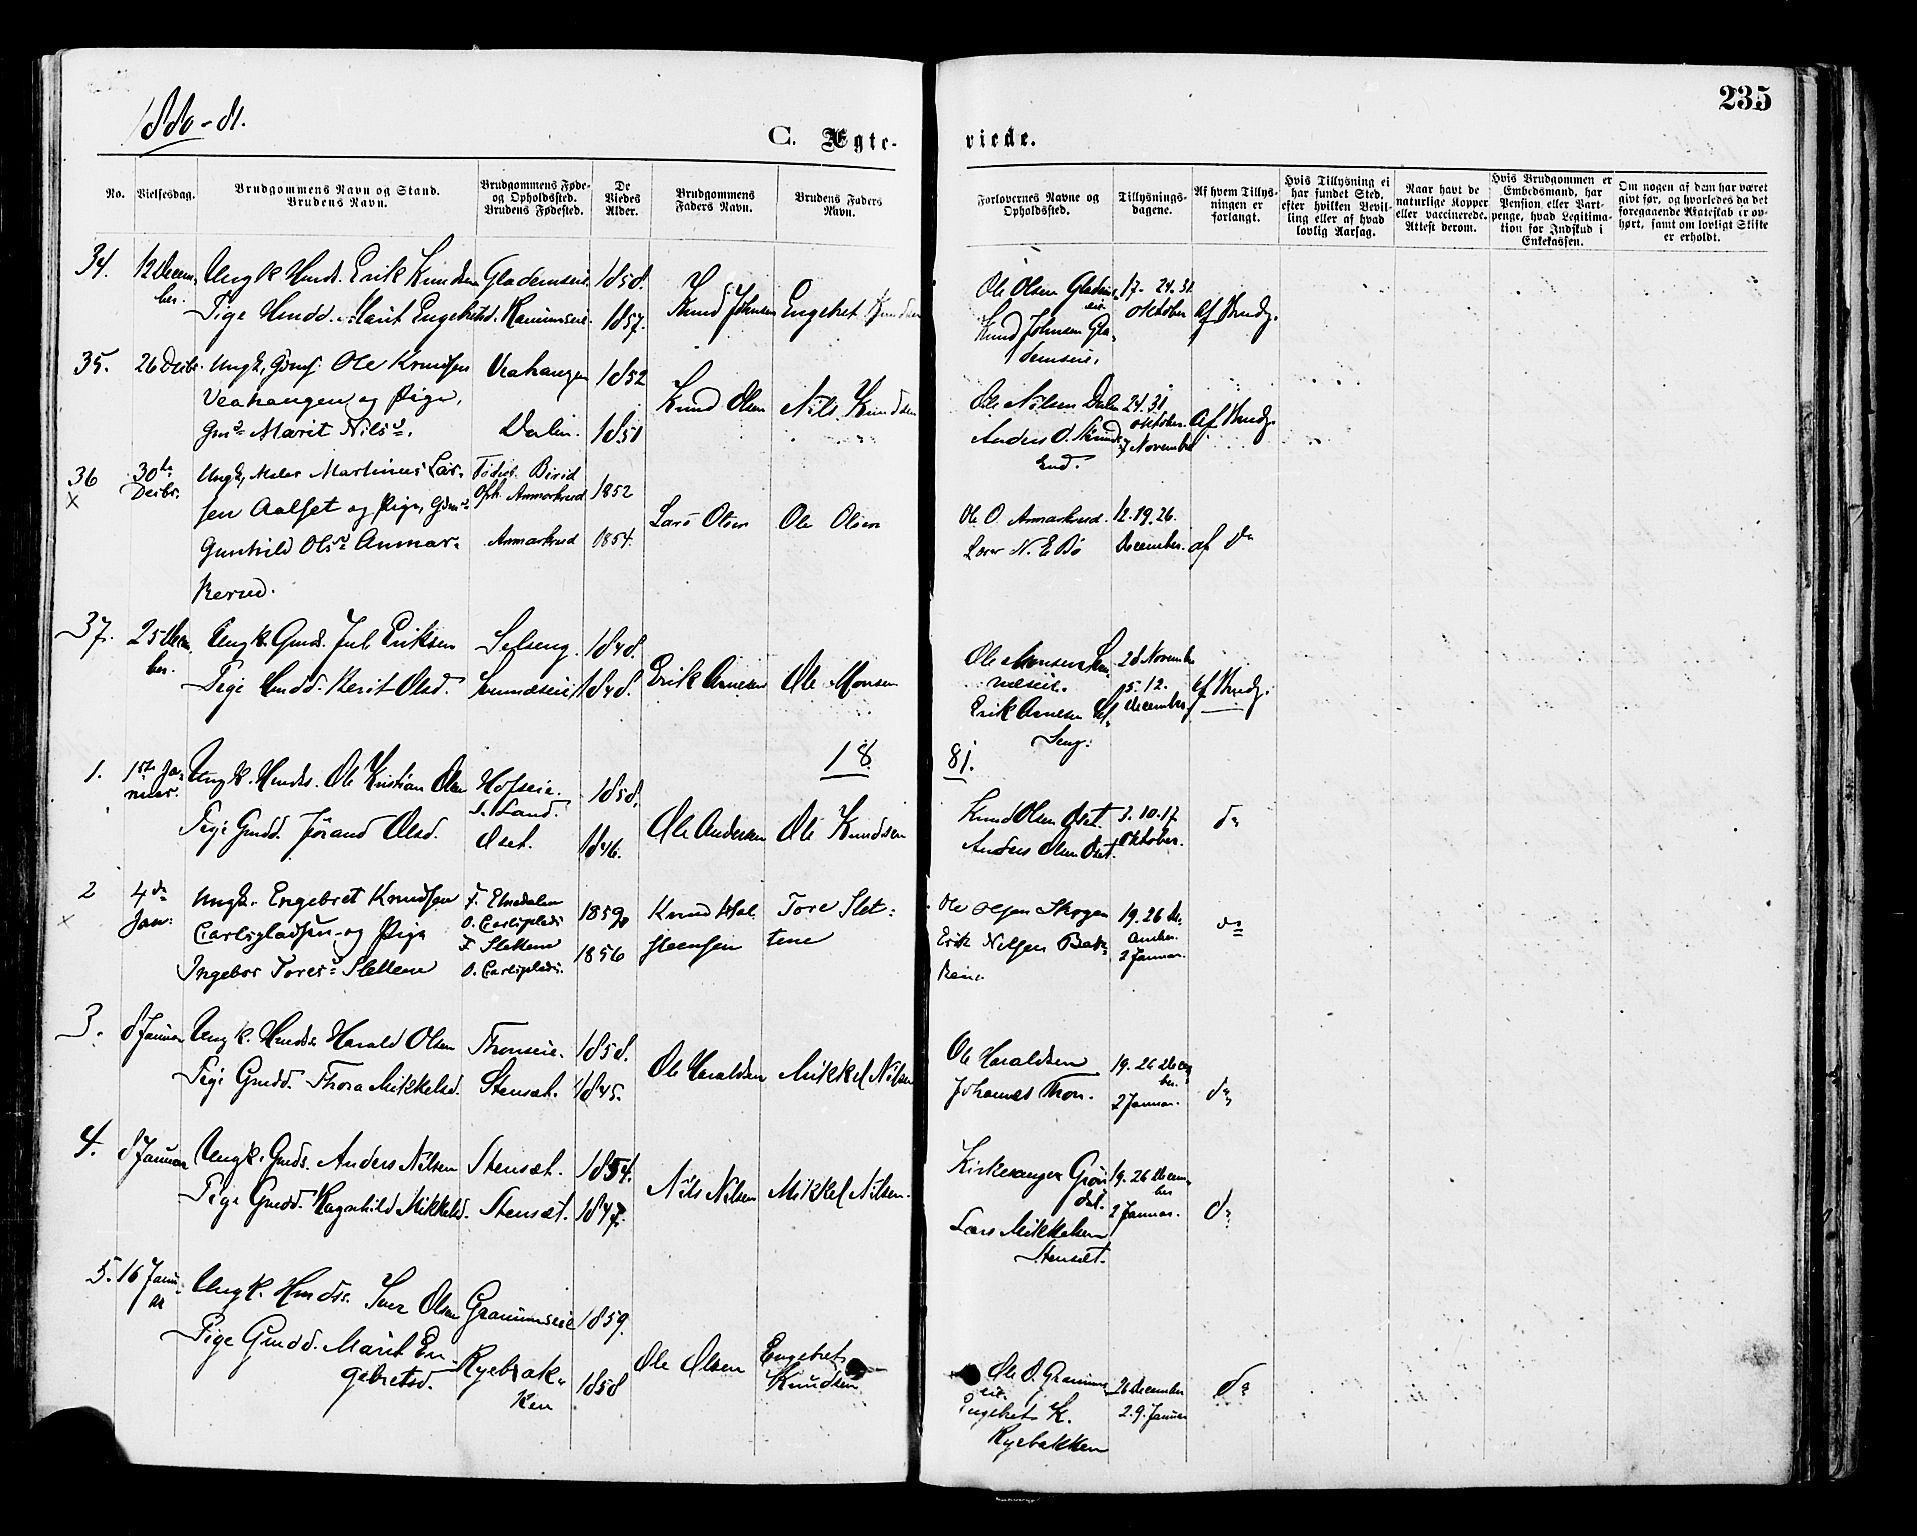 1880-81.
235
C. Ægte-
viede.
No.
Vielsesdag.
Brudgommens Navn og Stand.
Brudens Navn.
Brudgommens Føde-
og Opholdssted.
Brudens Fødested.
De
Viedes
Alder.
Brudgommens
Faders Navn.
Brudens Faders
Navn.
Forlovernes Navne og
Opholdssted.
Tillysnings-
dagene.
Af hvem Tillys-
ningen er
forlangt.
Hvis Tillysning ei
har fundet Sted,
efter hvilken Bevil-
ling eller af hvad
lovlig Aarsag.
Naar havt de
naturlige Kopper
eller vaccinerede.
Attest derom.
Hvis Brudgommen er
Embedsmand, har
Pension eller Vart-
penge, hvad Legitima-
tion for Indskud i
Enkekassen.
Om nogen af dem har været
givt før, og hvorledes da det
foregaaende Ægteskab er op-
hørt, samt om lovligt Skifte
er erholdt.
34.
12 Decem-
ber.
Ungk. Hmds. Erik Knudsen
Pige Hmdd. Marit Engebretsd.
1858.
1857.
Knud Johnsen
Engebret Knudsen
Ole Olsen
Knud Johnsen Gla-
demseie.
17. 24. 31
Oktober
Af Brudg.
35.
26 Decbr.
Ungk, Gmf. Ole Knudsen
Veahaugen og Pige,
Marit Nilsd.
Veahaugen
Dalen.
1852
1851
Knud Olsen
Nils Knudsen
Ole Nilsen Dalen
Anders O.
24. 31
Oktober.
7 November
Af Brudg.
36
x
30te
Decbr.
Ungk, Maler Martinus Lar-
sen Aalset og Pige,
Gunhild Olsd Anmar-
kerud.
Fødest. Birid
Oph. Anmarkrud
Anmarkrud
1852
1854.
Lars Olsen
Ole Olsen
Ole O. Anmarkrud.
N. E. Bø
12. 19. 26.
December.
af do
37.
25 Decem-
ber.
Ungk. Gmds. Jul Eriksen
Pige Hmdd. Berit Olsd.
Selseng.
1848.
1848.
Erik Arnesen
Ole Monsen
Ole Monsen
Erik Arnesen Sel-
seng.
28 November
5. 12.
December
Af Brudg.
18
81.
1.
1ste Ja-
nuar.
Ungk. Hmds. Ole Kristian Olsen
Pige Gmdd. Jørand Olsd.
Hofseie.
S. Land.
Øset.
1858.
1846.
Ole Andersen
Ole Knudsen
Knud Olsen Øset.
Anders Olsen Øset.
3. 10. 17
Oktober.
do
2
x
4de
Jan:
Ungk. Engebret Knudsen
Carlspladsen og Pige
Ingebor Toresd Slettene
F. Elnedalen
O. Carlsplads
F. Slettene
O. Carlsplads.
1859
1856
Knud Hal-
steensen
Tore Slet-
tene
Ole Olsen Skogen
Erik Nilsen Bak-
kene
19. 26 De-
cember.
2 Januar.
do
3.
8 Januar
Ungk. Hmds. Harald Olsen
Pige Gmdd. Thora Mikkelsd.
Thonseie.
Stensæt.
1858.
1845.
Ole Haraldsen
Mikkel Nilsen
Ole Haraldsen
Johannes Thon.
19. 26 Decem-
ber.
2 Januar.
do
4.
8 Januar
Ungk. Gmds. Anders Nilsen
Pige Gmdd. Ragnhild Mikkelsd.
Stensæt.
Stensæt.
1854.
1847.
Nils Nilsen
Mikkel Nilsen.
Kirkesanger Grøn-
dal.
Lars Mikkelsen
Stensæt.
19. 26 Decem-
ber
2 Januar.
do
5.
16 Janu-
ar
Ungk. Hmds. Iver Olsen
Pige Gmdd. Marit En-
gebretsd.
Granumseie
Ryebrak-
ken
1859.
1858
Ole Olsen
Engebret
Knudsen
Ole O. Granums-
eie.
Engebret K.
Ryebakken
26 December
2. 9. Januar
do